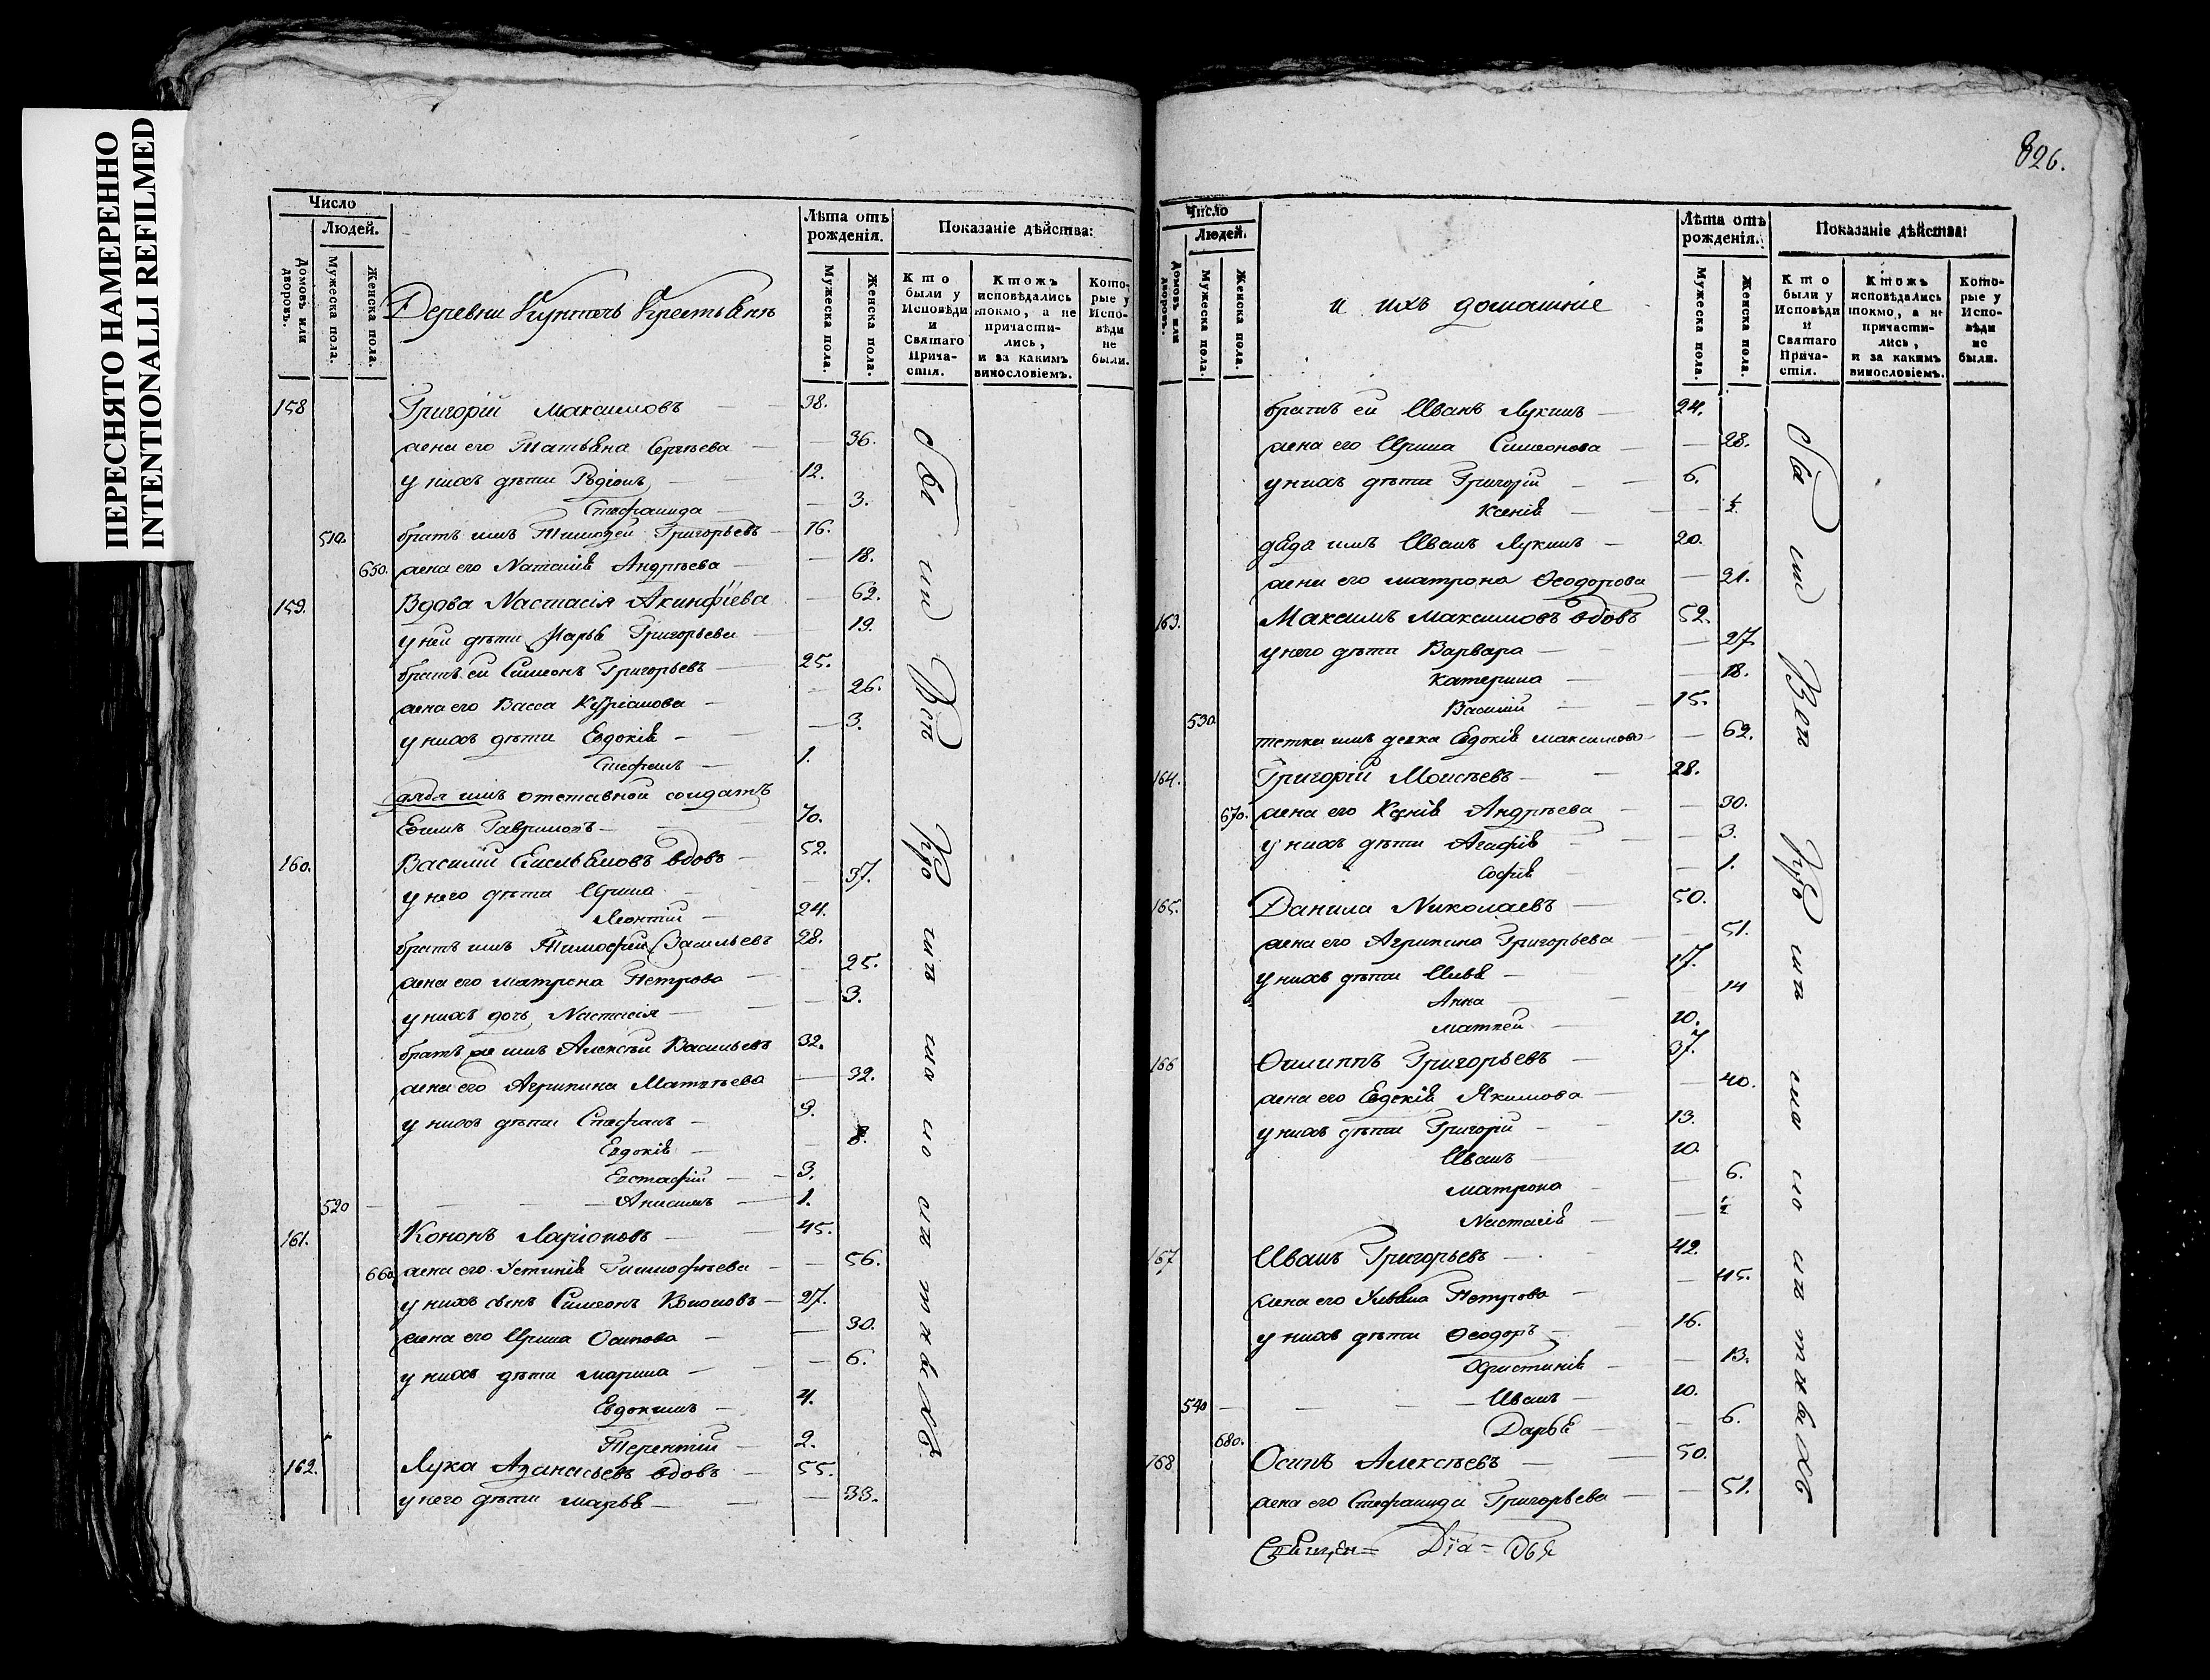 ПЕРЕСНЯТО НАМЕРЕННО
INTENTIONALLI REFILMED
Число
Людей.
Домовъ или дворовъ.
Мужеска пола.
Женска пола.
Деревни Крестьянъ
Лѣта отъ рожденія.
Мужеска пола.
Женска пола.
Показаніе дѣйства:
Кто были у Исповѣди и Святаго Причастія.
Ктожъ исповѣдались токмо, а не причастились, и за какимъ винословіемъ.
Которые у Исповѣди не были.
158 Григорій Максимовъ 38.
жена его Татьяна Сергѣева 36.
у нихъ дѣти Родіонъ 12.
Стефанида 3.
510. братъ имъ Тимоѳей Григорьевъ 16.
650. жена его Наталія Андрѣева 18.
159. Вдова Настасія Акинфіева 62.
у ней дѣти Марья Григорьева 19.
братъ ей Симеонъ Григорьевъ 25.
жена его Васса 26.
у нихъ дѣти Евдокія 3.
Стефанъ 1.
дядя имъ отставной солдатъ
Гавриловъ 70.
160. Василій Емельяновъ вдовъ 52.
у него дѣти Ирина 37.
Леонтій 24.
братъ имъ Тимофей Васильевъ 28.
жена его Матрена Петрова 25.
у нихъ дочь Настасія 3.
братъ же имъ Алексѣй Васильевъ 32.
жена его Агрипина Матвѣева 32.
у нихъ дѣти Стефанъ 9.
Евдокія 8.
Евстафій 3.
520 Анисимъ 1.
161. Кононъ Ларіоновъ 45.
660 жена его Устинія Тимофѣева 56.
у нихъ сынъ Симеонъ Кононовъ 27.
жена его Ирина Осипова 30.
у нихъ дѣти Марина 6.
Евдокимъ 4.
Терентій 2.
162. Лука Аѳанасьевъ вдовъ 55.
у него дѣти Марья 33.
826.
Число
Людей.
Домовъ или дворовъ.
Мужеска пола.
Женска пола.
и ихъ домашніе
Лѣта отъ рожденія.
Мужеска пола.
Женска пола.
Показаніе дѣйства:
Кто были у Исповѣди и Святаго Причастія.
Ктожъ исповѣдались токмо, а не причастились, и за какимъ винословіемъ.
Которые у Исповѣди не были.
братъ ей Иванъ Лукинъ 24.
жена его Ирина Симеонова 28.
у нихъ дѣти Григорій 6.
Ксенія ½
имъ Иванъ Лукинъ 20.
жена его Матрона Ѳеодорова 21.
163. Максимъ Максимовъ вдовъ 52.
у него дѣти Варвара 27.
Катерина 18.
530 Василій 15.
тетка имъ девка Евдокія Максимова 62.
164. Григорій Моисѣевъ 28.
670. жена его Ксенія Андрѣева 30.
у нихъ дѣти Агафія 3.
Софія 1.
165. Данила Николаевъ 50.
жена его Агрипина Григорьева 51.
у нихъ дѣти Илья 17.
Анна 14
Матвей 10.
166 Филиппъ Григорьевъ 37.
жена его Евдокія Якимова 40.
у нихъ дѣти Григорій 13.
Иванъ 10.
Матрона 6.
Настасія ½
167 Иванъ Григорьевъ 42.
жена его Ульяна Петрова 45.
у нихъ дѣти Ѳеодоръ 16.
Христинія 13.
540 Иванъ 10.
680. Дарья 6.
168 Осипъ Алексѣевъ 50.
жена его Стефанида Григорьева 51.